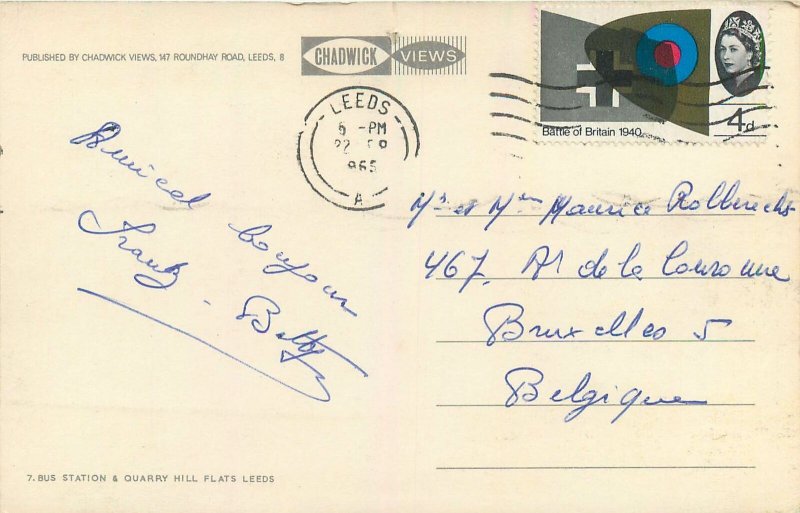 PUBLISHED BY CHADWICK VIEWS, 147 ROUNDHAY ROAD, LEEDS, 8
CHADWICK VIEWS
LEEDS
6 -PM
22
965
A
Battle of Britain 1940
4d
Amical bonjour
Frantz - Betty
Mr et Mme Maurice Rolbrecht
467, Av de la Couronne
Bruxelles 5
Belgique
7. BUS STATION & QUARRY HILL FLATS LEEDS